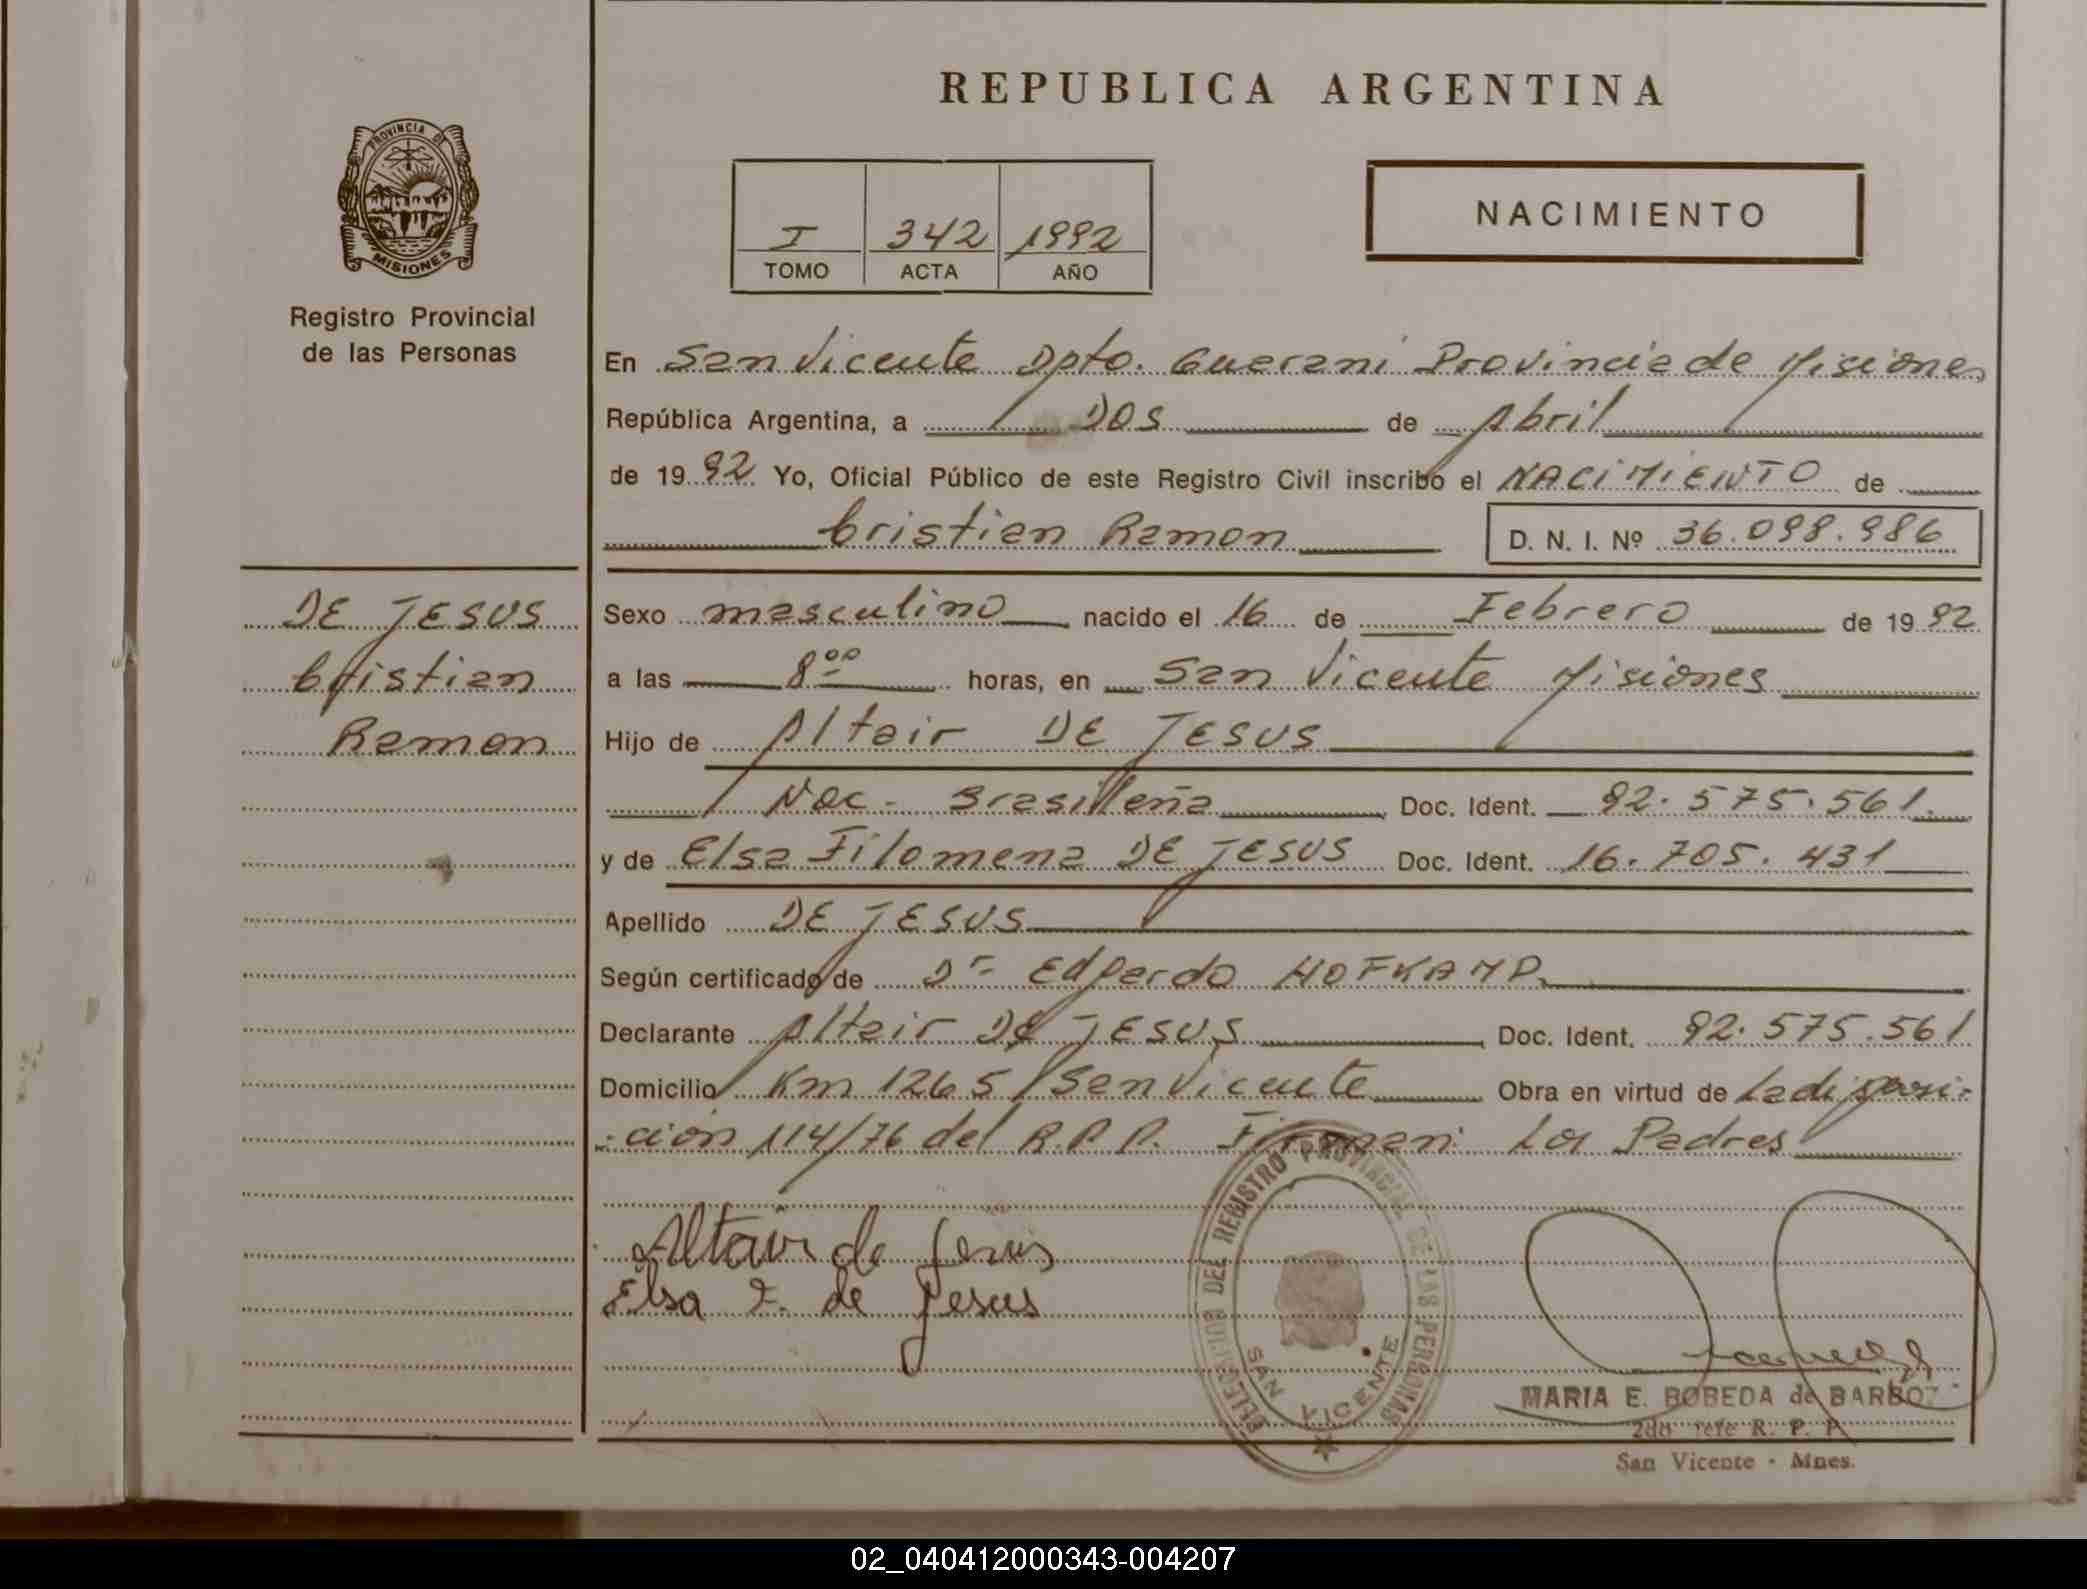 REPUBLICA ARGENTINA
PROVINCIA DE
MISIONES
Registro Provincial
de las Personas
I 342 1992
TOMO ACTA AÑO
NACIMIENTO
En San Vicente Dpto. Guarani Provincia de Misiones
República Argentina, a DOS de Abril
de 1992 Yo, Oficial Público de este Registro Civil inscribo el NACIMIENTO de
Cristian Ramon D. N. I. Nº 36.098.986
DE JESUS
Cristian
Ramon
Sexo masculino nacido el 16 de Febrero de 1992
a las 8ºº horas, en San Vicente Misiones
Hijo de Altair DE JESUS
Nac. Brasileña Doc. Ident. 92.575.561
y de Elsa Filomena DE JESUS Doc. Ident. 16.705.431
Apellido DE JESUS
Según certificado de Dr Edgardo HOFKAMP
Declarante Altair DE JESUS Doc. Ident. 92.575.561
Domicilio Km 1265 San Vicente Obra en virtud de La disposi-
-ción 114/76 del R.P.P. Firman: Los Padres
Altair de Jesus
Elsa F. de Jesus
DEL REGISTRO PROVINCIAL DE LAS PERSONAS
SAN VICENTE
MARIA E. BOBEDA de BARBOZ
2do Jefe R. P. P.
San Vicente - Mnes.
02_040412000343-004207